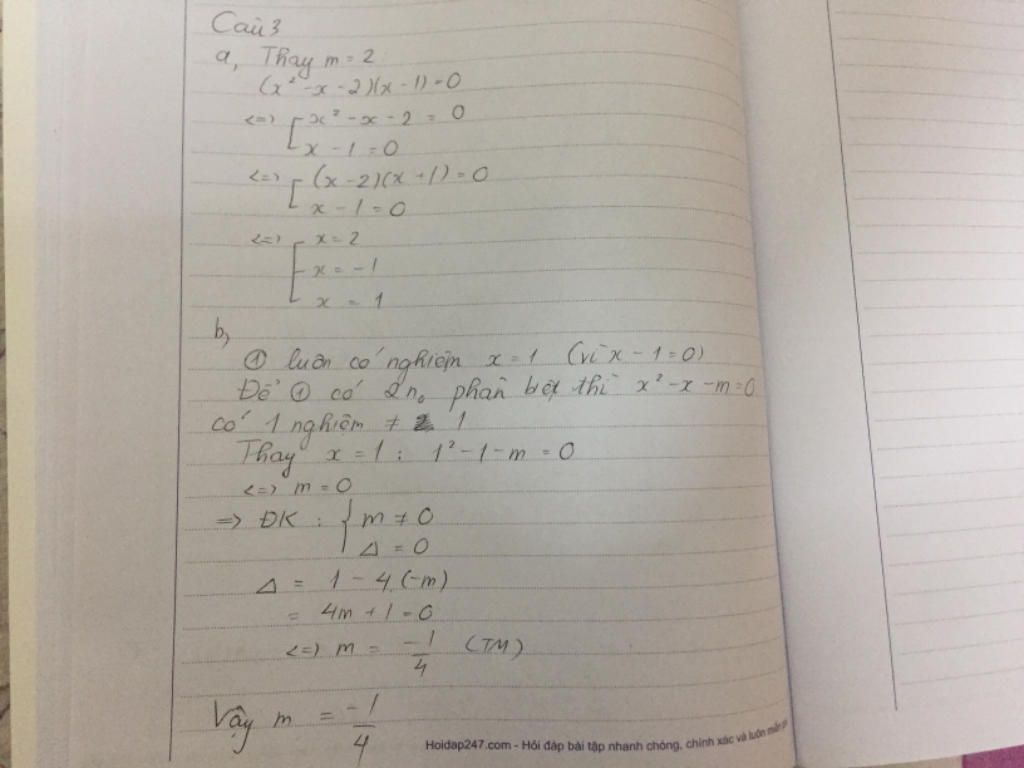 Câu 3
a, Thay m = 2
(x² - x - 2)(x - 1) = 0
<=> [ x² - x - 2 = 0
x - 1 = 0
<=> [ (x - 2)(x + 1) = 0
x - 1 = 0
<=> [ x = 2
x = -1
x = 1
b,
① luôn có nghiệm x = 1 (vì x - 1 = 0)
Để ① có 2 n₀ phân biệt thì x² - x - m = 0
có 1 nghiệm ≠ 1
Thay x = 1 : 1² - 1 - m = 0
<=> m = 0
=> ĐK : { m ≠ 0
Δ = 0
Δ = 1 - 4.(-m)
= 4m + 1 = 0
<=> m = -1/4 (TM)
Vậy m = -1/4
Hoidap247.com - Hỏi đáp bài tập nhanh chóng, chính xác và luôn miễn phí